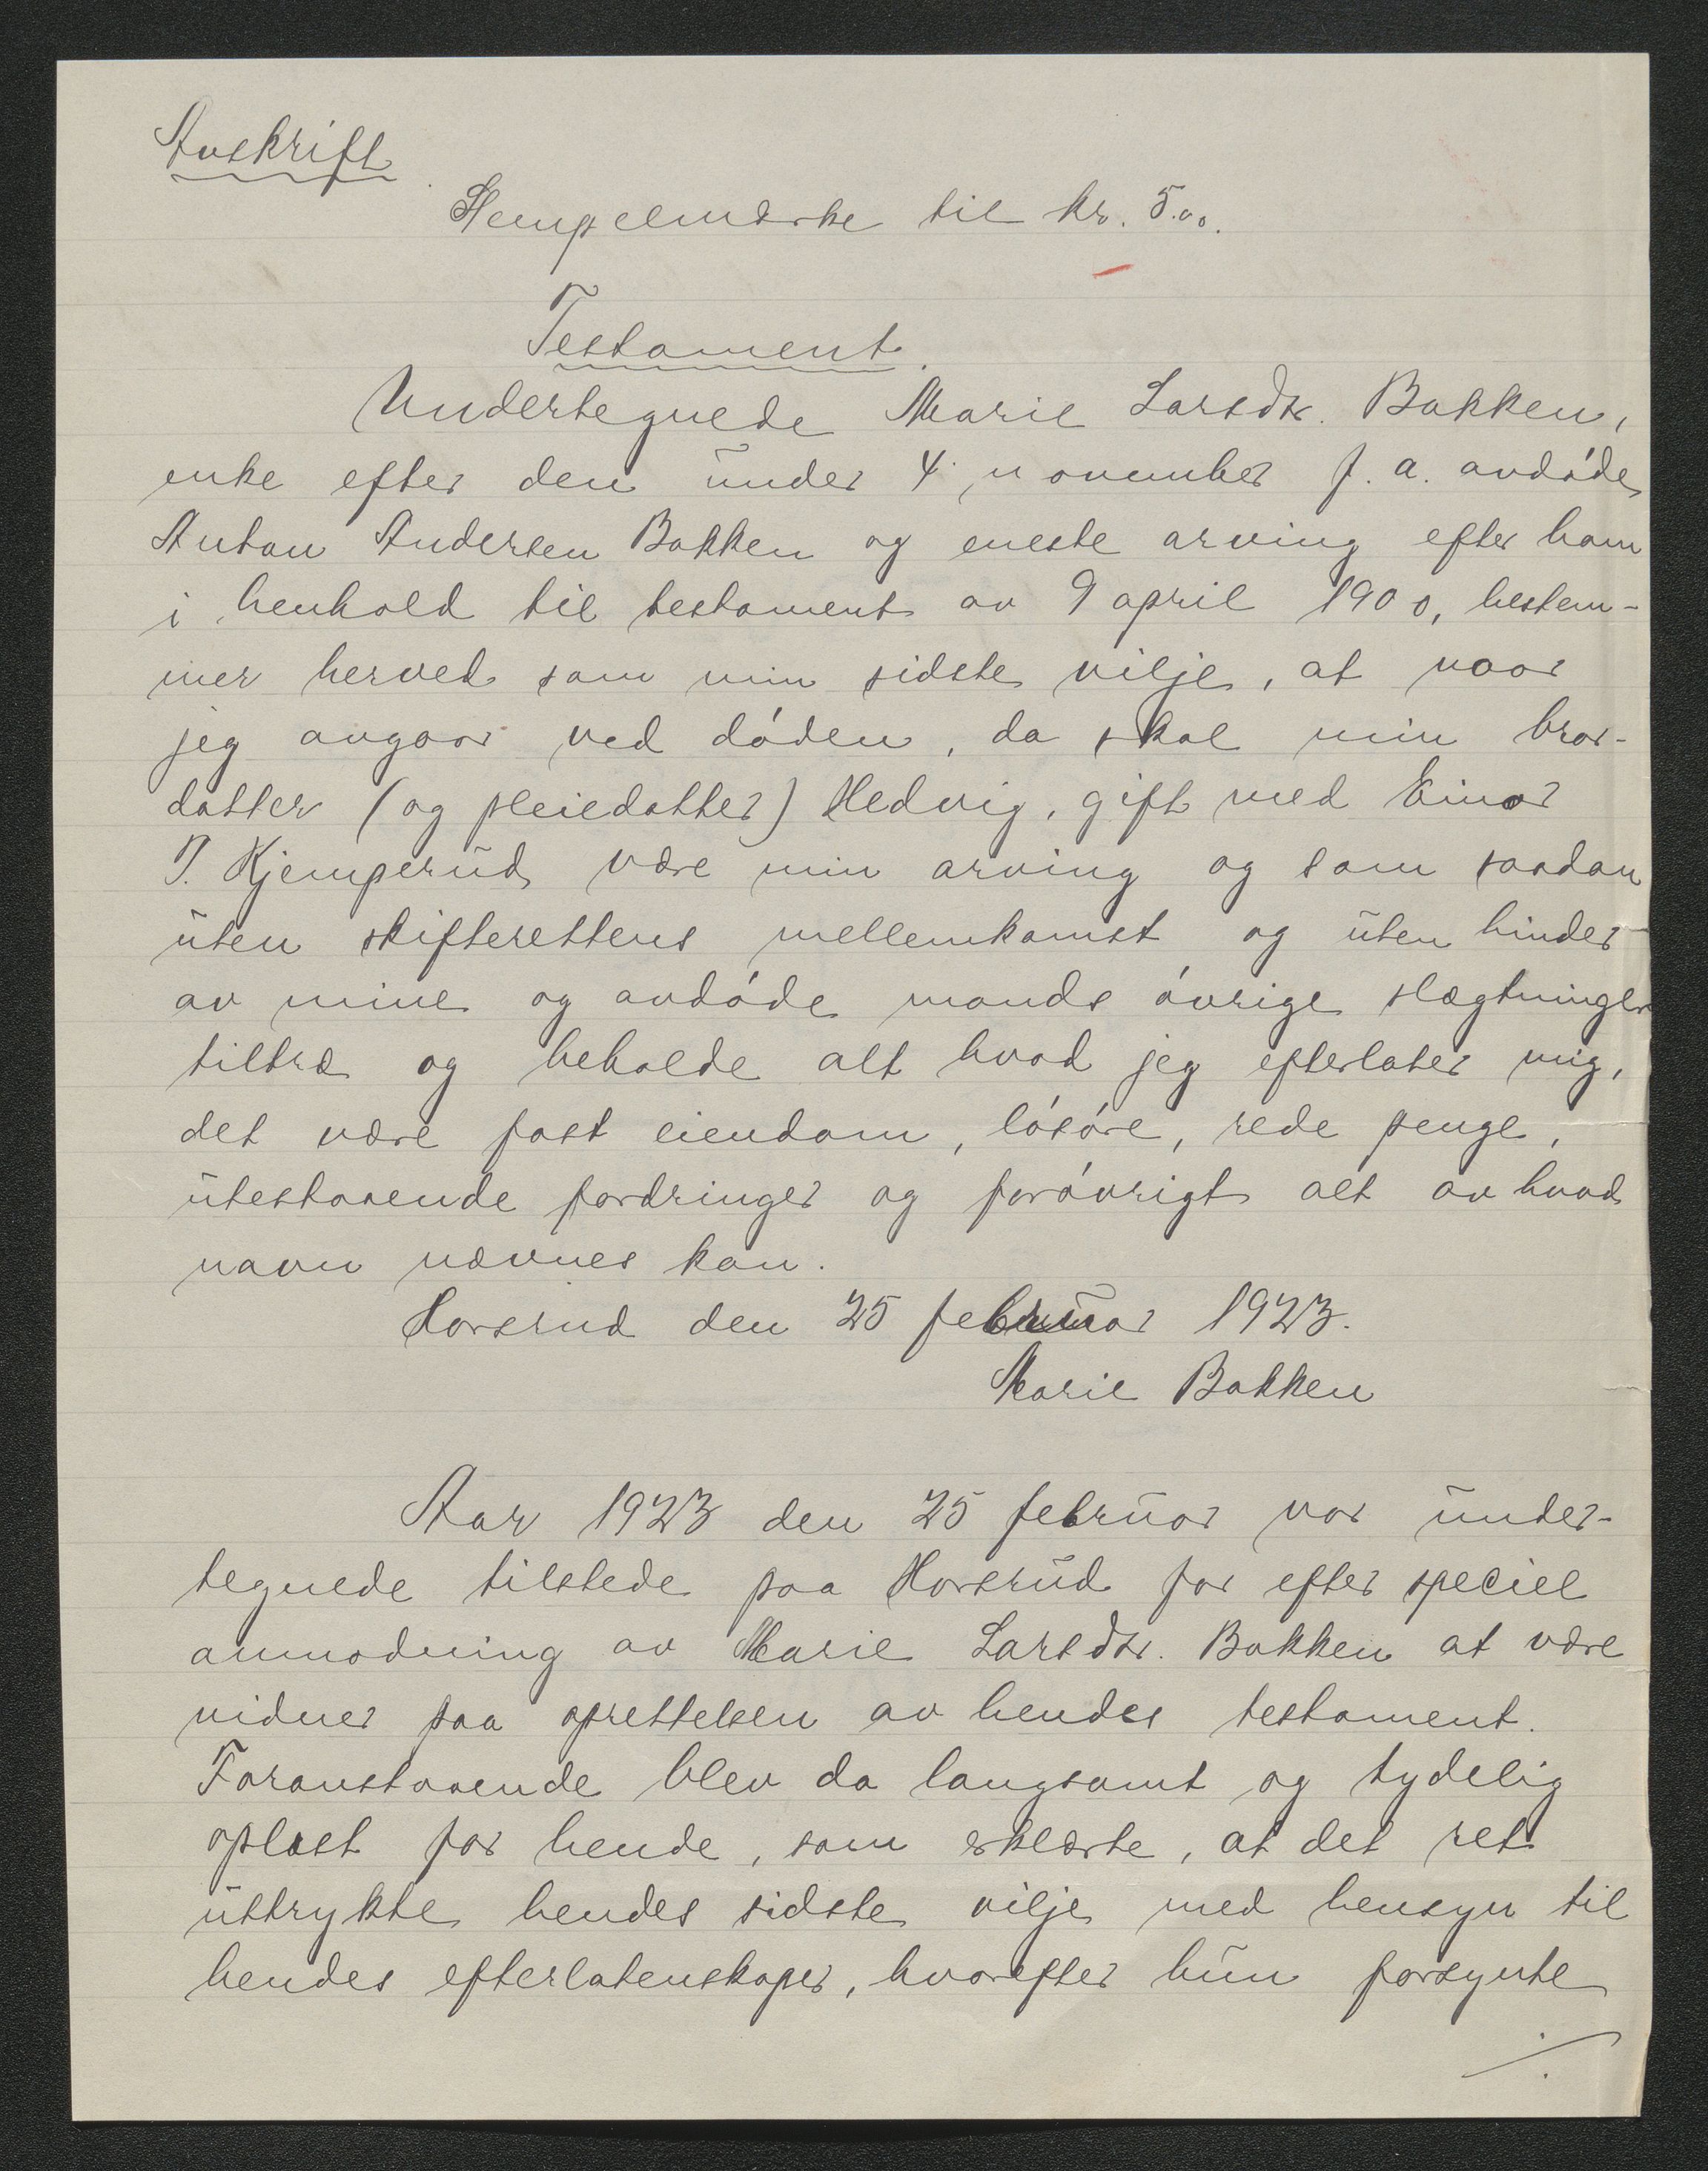 Avskrift.
Stempelmærke til kr. 5.00.
Testament.
Undertegnede Marie Larsdtr. Bakken,
enke efter den under 4. november f. a. avdøde
Anton Andersen Bakken og eneste arving efter ham
i henhold til testament av 9 april 1900, bestem-
mer herved som min sidste vilje, at naar
jeg avgaar ved døden, da skal min bror-
datter (og pleiedatter) Hedvig, gift med Einar
T. Kjemperud være min arving og som saadan
uten skifterettens mellemkomst og uten hinder
av mine og avdøde mands øvrige slægtninger
tiltræ og beholde alt hvad jeg efterlater mig,
det være fast eiendom, løsøre, rede penge,
utestaaende fordringer og forøvrigt alt av hvad
navn nævnes kan.
Horsrud den 25 februar 1923.
Marie Bakken
Aar 1923 den 25 februar var under-
tegnede tilstede paa Horsrud for efter speciel
anmodning av Marie Larsdtr. Bakken at være
vidner paa oprettelsen av hendes testament.
Foranstaaende blev da langsomt og tydelig
oplæst for hende, som erklærte, at det ret
uttrykte hendes sidste vilje med hensyn til
hendes efterlatenskaper, hvorefter hun forsynte
./.